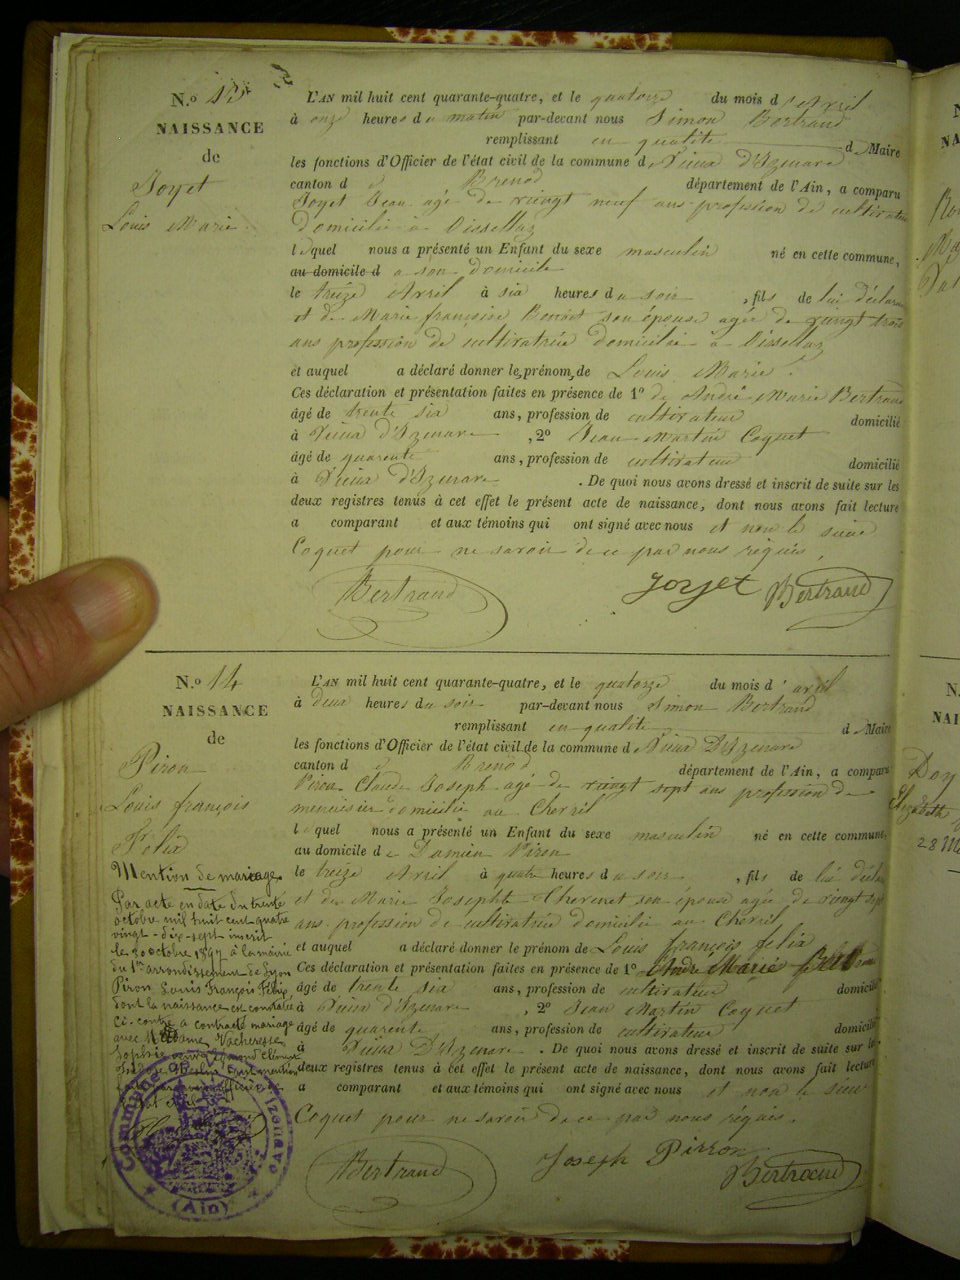 N.o 13
NAISSANCE
de
Joyet
Louis Marie
L'AN mil huit cent quarante-quatre, et le quatorze du mois d'Avril
à onze heures du matin par-devant nous Simon Bertrand
remplissant en qualité d Maire
les fonctions d'Officier de l'état civil de la commune de Vieux d'Izenave
canton de Brenod département de l'Ain, a comparu
Joyet Jean agé de vingt neuf ans profession de cultivateur
Domicilié à
lequel nous a présenté un Enfant du sexe masculin né en cette commune,
au domicile d a son domicile
le treize Avril à six heures du soir, fils de lui déclarant
et de Marie françoise son épouse agée de vingt trois
ans profession de cultivatrice domiciliée à
et auquel a déclaré donner le prénom de Louis Marie.
Ces déclaration et présentation faites en présence de 1o de André Marie Bertrand
âgé de trente six ans, profession de cultivateur domicilié
à Vieux d'Izenave, 2o Jean Martin Coquet
âgé de quarente ans, profession de cultivateur domicilié
à Vieux d'Izenave. De quoi nous avons dressé et inscrit de suite sur les
deux registres tenus à cet effet le présent acte de naissance, dont nous avons fait lecture
a comparant et aux témoins qui ont signé avec nous et non le
Coquet pour ne savoir de ce par nous requis.
Bertrand Joyet Bertrand
N.o 14
NAISSANCE
de
Piron
Louis françois
Félix
L'AN mil huit cent quarante-quatre, et le quatorze du mois d'avril
à deux heures du soir par-devant nous Simon Bertrand
remplissant en qualité d Maire
les fonctions d'Officier de l'état civil de la commune de Vieux D'Izenave
canton de Brenod département de l'Ain, a comparu
Piron Claude Joseph agé de vingt sept ans profession de
menuisier domicilié au
lequel nous a présenté un Enfant du sexe masculin né en cette commune,
au domicile de Damien Piron
le treize Avril à quatre heures du soir, fils de lui
et de Marie Josephte son épouse agée de vingt
ans profession de cultivatrice domicilié au
et auquel a déclaré donner le prénom de Louis françois felix
Ces déclaration et présentation faites en présence de 1o André Marie
âgé de trente six ans, profession de cultivateur domicilié
à Vieux d'Izenave, 2o Jean Martin Coquet
âgé de quarente ans, profession de cultivateur domicilié
à Vieux D'Izenave. De quoi nous avons dressé et inscrit de suite sur les
deux registres tenus à cet effet le présent acte de naissance, dont nous avons fait lecture
a comparant et aux témoins qui ont signé avec nous et non le
Coquet pour ne savoir de ce par nous requis.
Bertrand Joseph Pirron Bertrand
Mention de mariage
Par acte en date du trente
octobre mil huit cent quatre
vingt-dix-sept inscrit
le 30 octobre 1897 à la mairie
du 1er arrondissement de Lyon
Piron Louis François Félix
dont la naissance est constatée
ci-contre a contracté mariage
avec Vacheresse
Sophie
Commune de Vieux d'Izenave
(Ain)